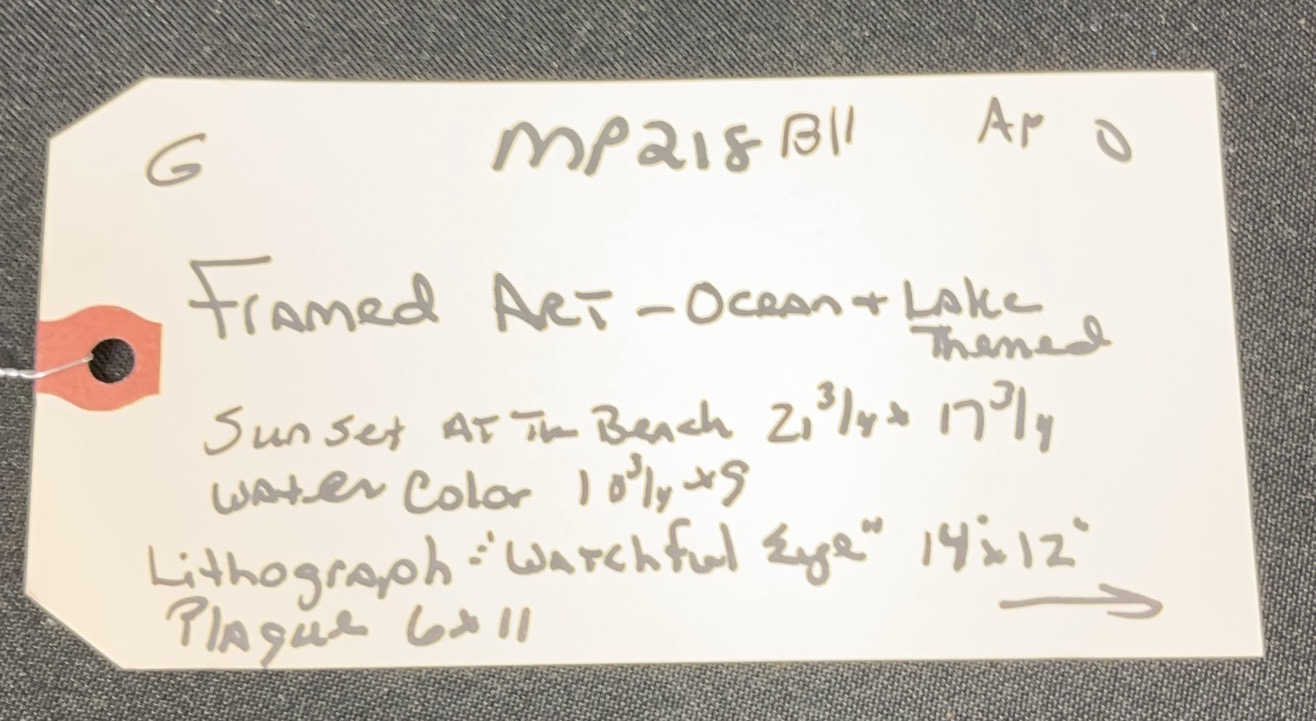 G MP218 B11 Ar O
Framed Art - Ocean + Lake
Themed
Sunset At The Beach 21 3/4 x 17 3/4
Water Color 10 3/4 x 9
Lithograph - "Watchful Eye" 14" x 12"
Plague 6 x 11
→